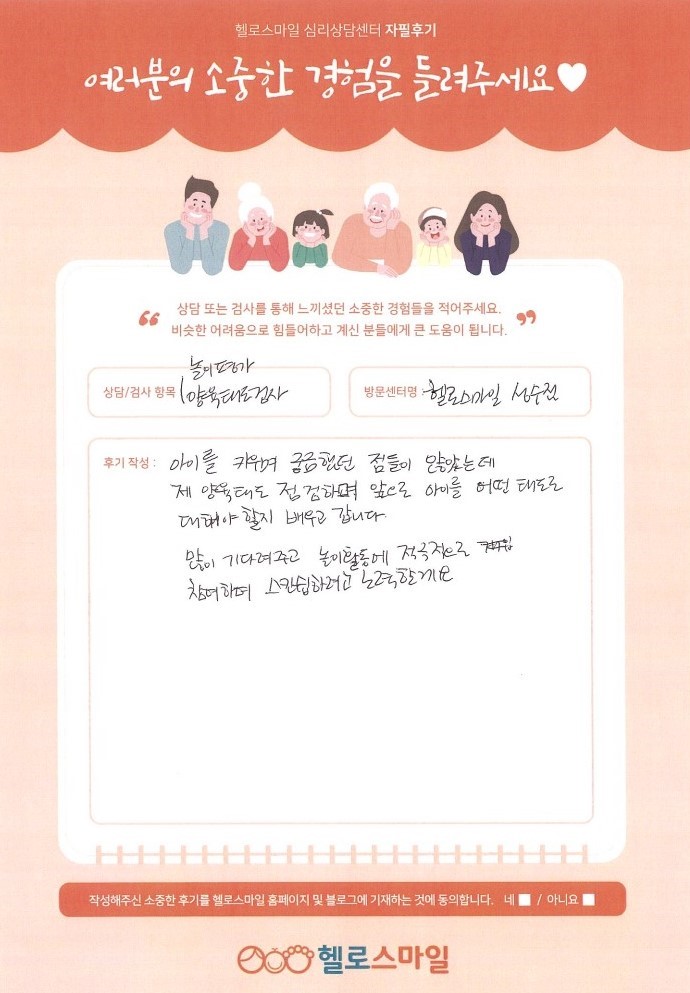 헬로스마일 심리상담센터 자필후기
여러분의 소중한 경험을 들려주세요♥
“ 상담 또는 검사를 통해 느끼셨던 소중한 경험들을 적어주세요.
비슷한 어려움으로 힘들어하고 계신 분들에게 큰 도움이 됩니다. ”
상담/검사 항목 놀이평가
양육태도검사
방문센터명 : 헬로스마일 성수점
후기 작성 : 아이를 키우며 궁금했던 점들이 많았는데
제 양육태도 점검하며 앞으로 아이를 어떤 태도로
대해야 할지 배우고 갑니다.
많이 기다려주고 놀이활동에 적극적으로
참여하며 스킨쉽하려고 노력할게요
작성해주신 소중한 후기를 헬로스마일 홈페이지 및 블로그에 기재하는 것에 동의합니다. 네 ■ / 아니요 ■
헬로스마일